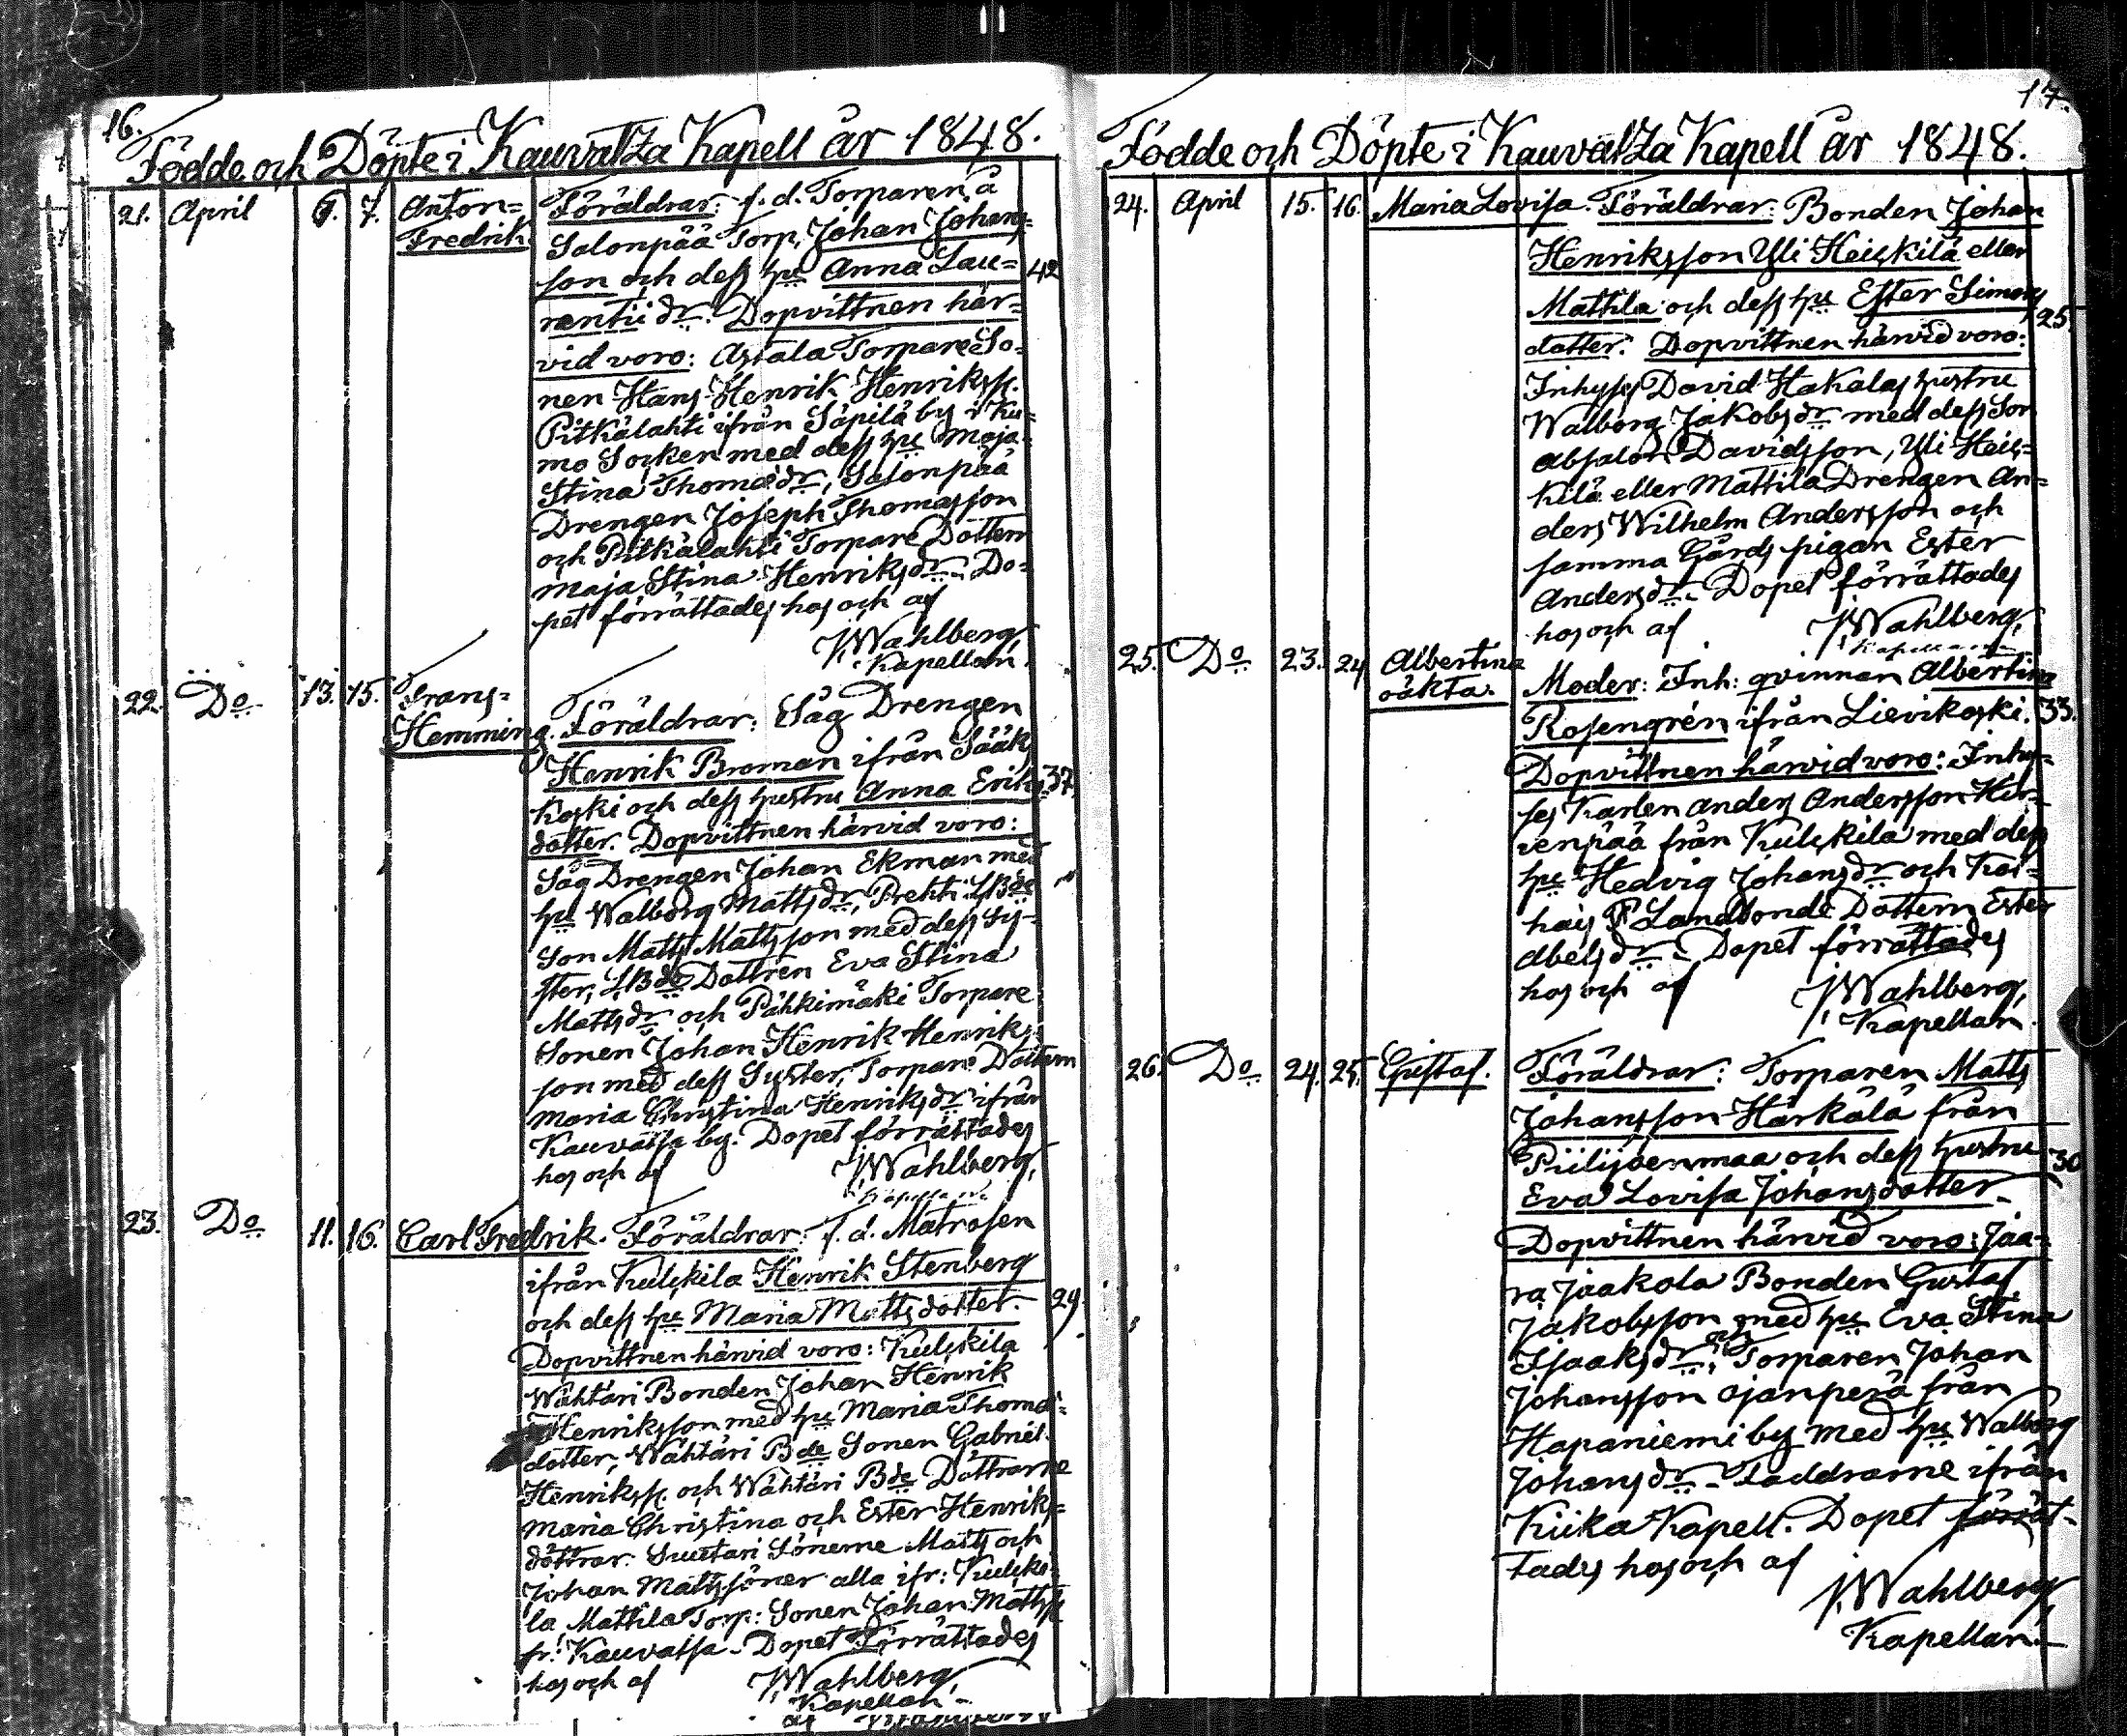 16.
Födde och Döpte i Kauvatza Kapell år 1848.
21. April 6. 7. Anton= Föräldrar: f. d. Torparen å
Fredrik Salonpää Torp, Johan Johans=
son och dess hu Anna Lau= 42
rentii dr. Dopvittnen här=
vid voro: Astala Torpare So=
nen Hans Henrik Henrikss.
Pitkälahti ifrån Säpilä by i Ku=
mo Socken med dess hu Maja
Stina Thomædr, Salonpää
Drengen Joseph Thomasson
och Pitkälahti Torpare Dottern
Maja Stina Henriksdr. Do=
pet förrättades hos och af
J. Wahlberg,
Kapellan.
22. Do 13. 15. Frans=
Hemming. Föräldrar: Såg Drengen
Henrik Broman ifrån Sääks
koski och dess hustru Anna Eriks 37.
dotter. Dopvittnen härvid voro:
Såg Drengen Johan Ekman med
hu Walborg Mattsdr, Prehti LBde
Son Matts Mattsson med dess Sy=
ster, LBde Dottren Eva Stina
Mattsdr och Pähkimäki Torpare
Sonen Johan Henrik Henriks
son med dess Syster, Torpare Dottern
Maria Christina Henriksdr ifrån
Kauvatsa by. Dopet förrättades
hos och af J. Wahlberg,
Kapellan.
23. Do 11. 16. Carl Fredrik. Föräldrar: f. d. Matrosen
ifrån Kulskila Henrik Stenberg
och dess hu Maria Mattsdotter. 29.
Dopvittnen härvid voro: Kulskila
Wähtäri Bonden Johan Henrik
Henriksson med hu Maria Thomæ=
dotter, Wähtäri Bde Sonen Gabriel
Henrikss. och Wähtäri Bde Döttrarne
Maria Christina och Ester Henriks=
döttrar. Suutari Sönerne Matts och
Johan Matts söner alla ifr: Kulski=
la Mattila Torp: Sonen Johan Mattss
fr: Kauvatsa. Dopet Förrättades
hos och af J. Wahlberg,
Kapellan.
17.
Födde och Döpte i Kauvatza Kapell år 1848.
24. April 15. 16. Maria Lovisa. Föräldrar: Bonden Johan
Henriksson Yli Heiskilä eller
Mattila och dess hu Ester Simons 25
dotter. Dopvittnen härvid voro:
Inhyses David Hakalas hustru
Walborg Jakobsdr med dess Son
Absalon Davidsson, Yli Heis=
kilä eller Mattila Drengen An=
ders Wilhelm Andersson och
samma Gårds pigan Ester
Andersdr. Dopet förrättades
hos och af J. Wahlberg,
Kapellan
25. Do 23. 24 Albertina
oäkta. Moder: Inh: qvinnan Albertina
Rosengrén ifrån Lievikoski. 33.
Dopvittnen härvid voro: Inhy=
ses Karlen Anders Andersson Hir=
venpää från Kulskila med dess
hu Hedvig Johansdr och Koi=
hais Landbonde Dottern Ester
Abelsdr. Dopet förrättades
hos och af J. Wahlberg,
Kapellan.
26. Do 24. 25. Gustaf. Föräldrar: Torparen Matts
Johansson Härkälä från
Piilijoenmaa och dess hustru 30
Eva Lovisa Johansdotter
Dopvittnen härvid voro: Jaa=
ra Jaakola Bonden Gustaf
Jakobsson med hu Eva Stina
Isaaksdr, och Torparen Johan
Johansson Ojanperä från
Hapaniemi by med hu Walborg
Johansdr. Faddrarne ifrån
Kiika Kapell. Dopet förrät=
tades hos och af
J. Wahlberg,
Kapellan.